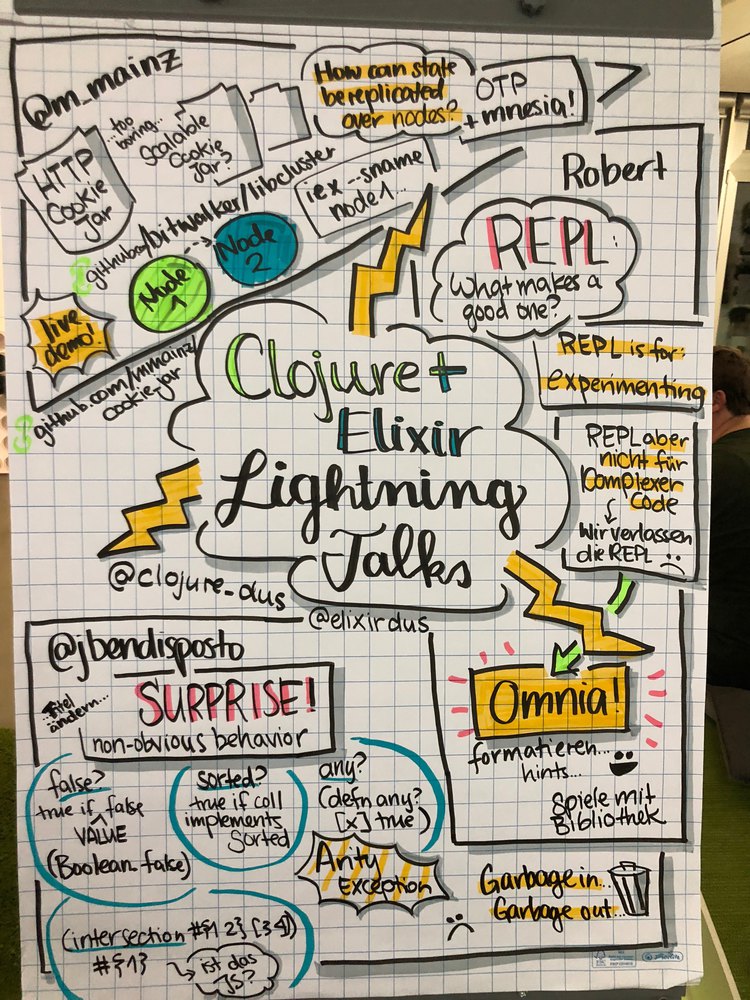 @m_mainz
HTTP
Cookie
Jar
...too
boring...
Scalable
Cookie
Jar?
How can state
be replicated
over nodes?
OTP
+ mnesia!
github.../bitwalker/libcluster
iex --sname
node1...
Node
1
Node
2
live
demo!
github.com/mmainz/
cookie_jar
Robert
REPL:
What makes a
good one?
REPL is for:
experimenting
REPL aber
nicht für
Complexer
Code
Wir verlassen
die REPL
Clojure +
Elixir
Lightning
Talks
@clojure_dus
@elixirdus
Omnia!
formatieren...
hints...
Spiele mit
Bibliothek
@jbendisposto
...Titel
ändern...
SURPRISE!
non-obvious behavior
false?
true if false
VALUE
(Boolean. false)
sorted?
true if coll
implements
Sorted
any?
(defn any?
[x] true)
Arity
Exception
(intersection #{1 2} [3 4])
#{1}
ist das
JS?
Garbage in...
Garbage out...